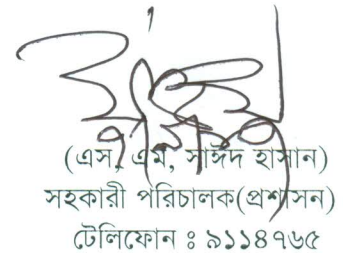 (এস, এম, সাঈদ হাসান)
সহকারী পরিচালক(প্রশাসন)
টেলিফোন ঃ ৯১১৪৭৬৫